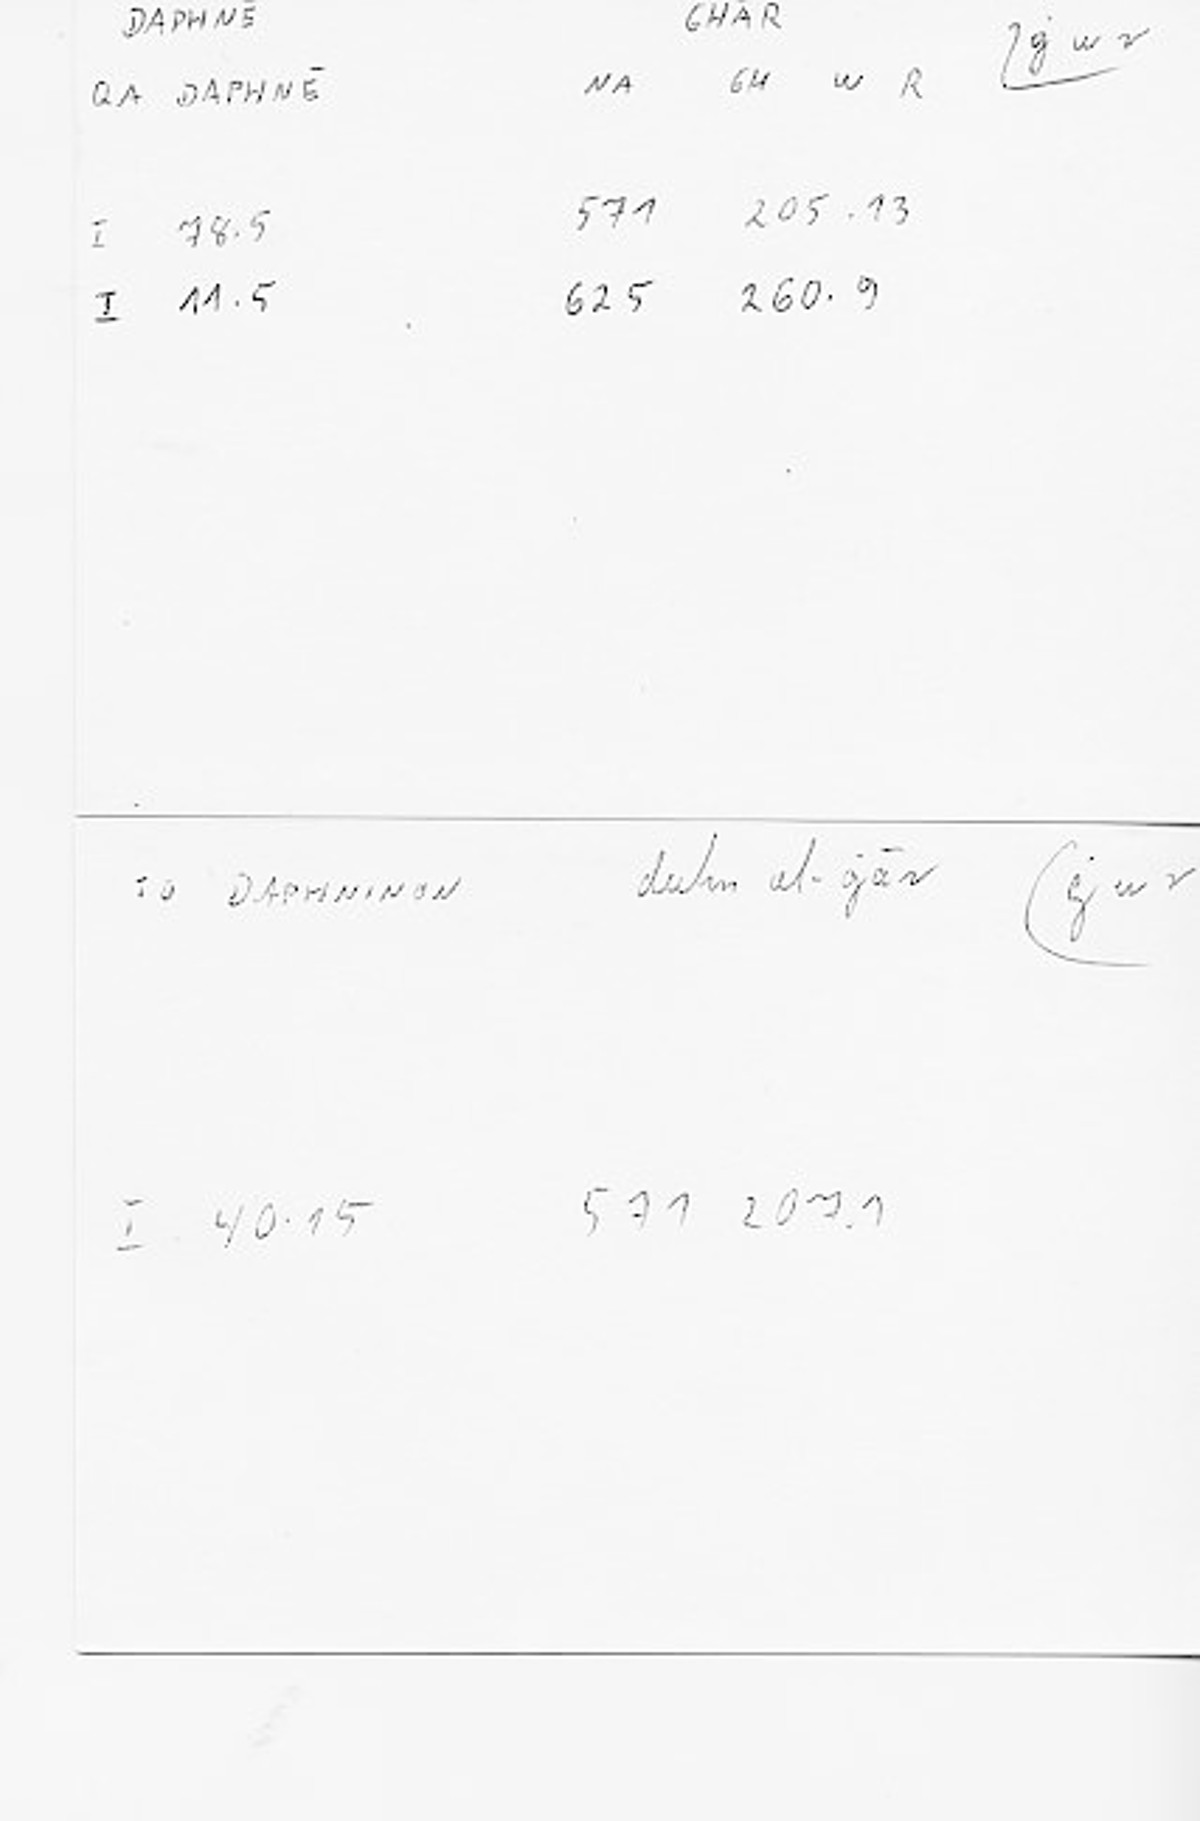 DAPHNĒ GHĀR ġ w r
QA DAPHNĒ NA GH W R
I 78.5 571 205.13
I 11.5 625 260.9
TO DAPHNINON duhn al-ġār ġ w r
I 40.15 571 207.1